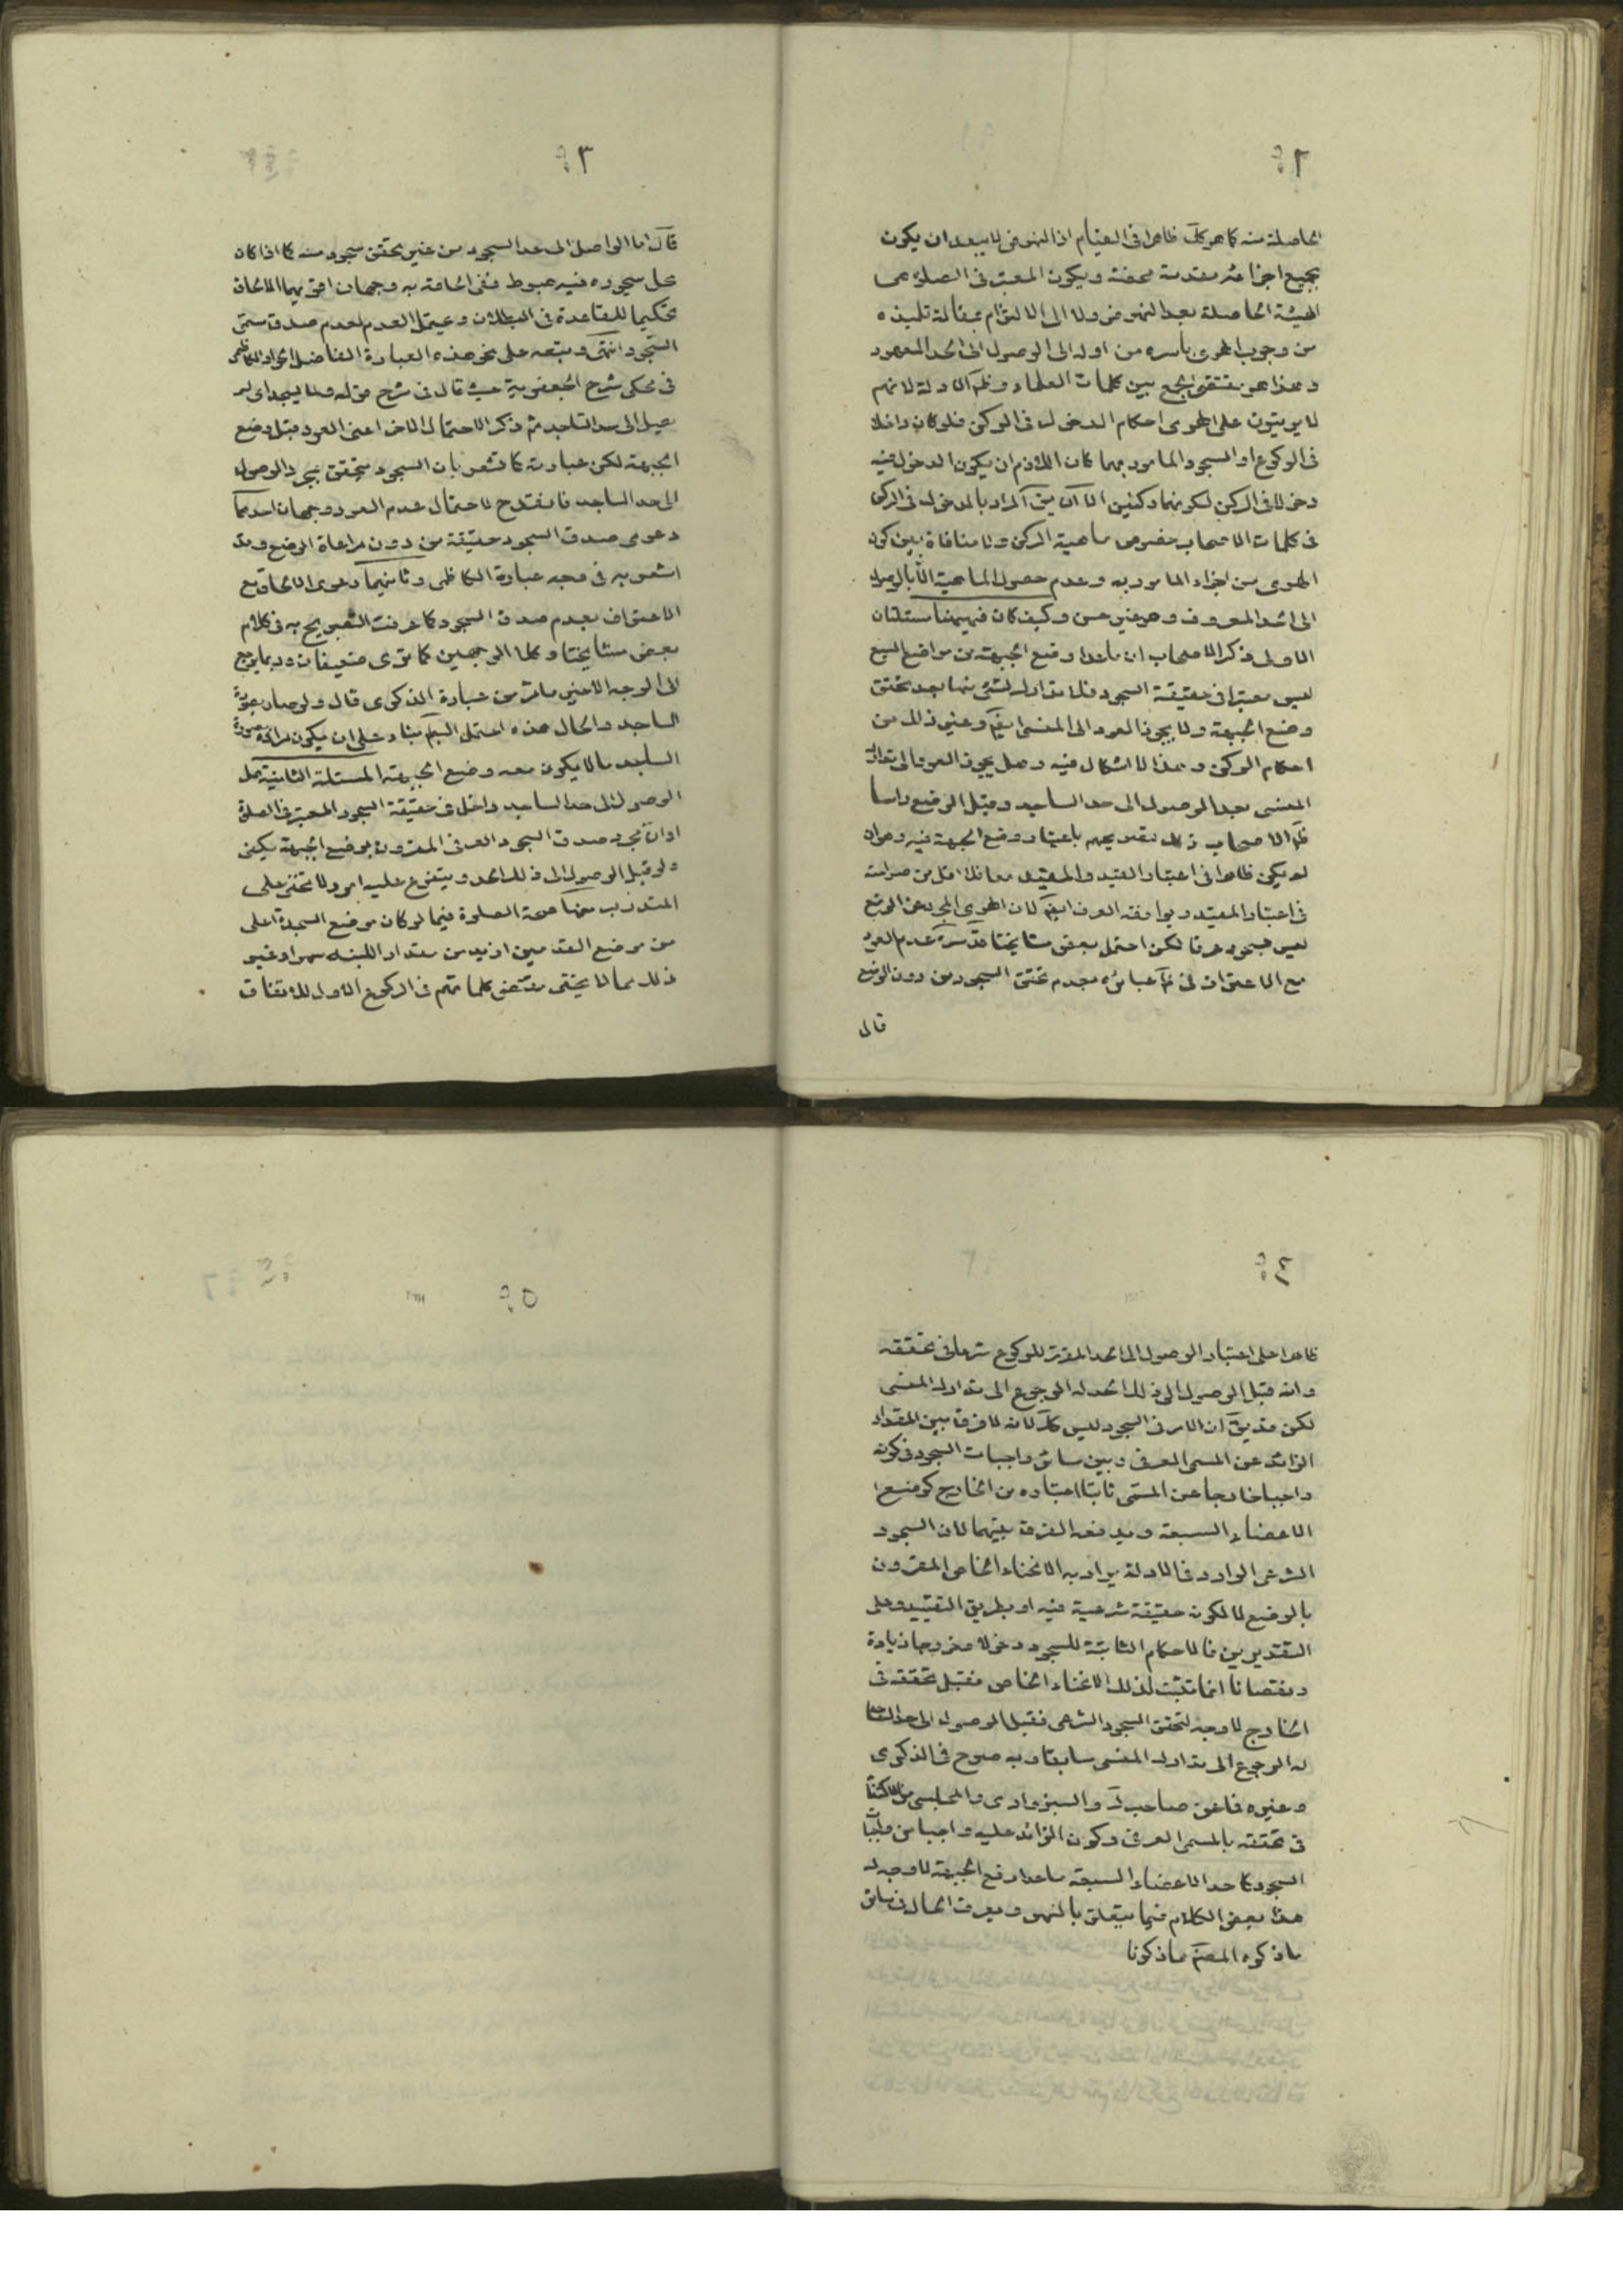 ٢
الحاصلة منه كما هو كك ظاهرا فى القيام اذ النهوض لا يبعد ان يكون
بجميع اجزائه مقدمة محضة ويكون المعتبر فى الصلوة هى
الهيئة الحاصلة بعد النهوض ولا الى الالتزام بمقالة تلميذه
من وجوب الهوى باسره من اوله الى الوصول الى الحد المعهود
وهذا هو مقتضى الجمع بين كلمات العلماء وظم الادلة لانهم
لا يرتبون على الهوى احكام الدخول فى الركن فلو كان داخلا
فى الركوع او السجود المامور بهما كان اللازم ان يكون الدخول فيه
دخولا فى الركن لكونهما ركنين الا ان يق المراد بالدخول فى الركن
فى كلمات الاصحاب خصوص ماهية الركن ولا منافاة بين كون
الهوى من اجزاء المامور به وعدم حصول الماهية الا بالوصول
الى الحد المعروف وهو حسن وكيف كان فهيهنا مسئلتان
الاولى ذكر الاصحاب ان ماعدا وضع الجبهة من مواضع السبع
ليس معتبرا فى حقيقة السجود فلا تدارك لشئ منها بعد تحقق
وضع الجبهة ولا يجوز العود الى المنسى ايضم وغير ذلك من
احكام الركن وهذا لا اشكال فيه وهل يجوز العود الى تدارك
المنسى بعد الوصول الى حد الساجد وقبل الوضع راسا
ظم الاصحاب ذلك لتصريحهم باعتبار وضع الجبهة فيه وهو ان
لم يكن ظاهرا فى اعتبار القيد والمقيد معا فلا اقل من صراحته
فى اعتبار المقيد ويوافقه العرف ايضم لان الهوى المجرد عن الوضع
ليس بسجود عرفا لكن احتمل بعض مشايخنا قدسره عدم العود
مع الاعتراف فى عبائره بعدم تحقق السجود من دون الوضع
قال
٣
قال اما الواصل الى حد السجود من غير تحقق سجود منه كما اذا كان
محل سجوده فيه هبوط ففى الحاقه به وجهان اقربهما الالحاق
تحكيما للقاعدة فى البطلان ويحتمل العدم لعدم صدق مسمى
السجود انتهى وتبعه على نحو هذه العبارة الفاضل الجواد الكاظمى
فى محكى شرح الجعفرية حيث قال فى شرح قوله ولما يسجد اى لم
يصل الى حد الساجد ثم ذكر الاحتمال الاخر اعنى العود قبل وضع
الجبهة لكن عبارته كما تشعر بان السجود يتحقق بمجرد الوصول
الى حد الساجد فانقدح لاحتمال عدم العود وجهان احدهما
دعوى صدق السجود حقيقة من دون مراعاة الوضع وقد
اشعر به فى وجه عبارة الكاظمى وثانيهما دعوى الالحاق مع
الاعتراف بعدم صدق السجود كما عرفت التصريح به فى كلام
بعض مشايخنا وكلا الوجهين كما ترى ضعيفان وربما يرجع
الى الوجه الاخير مامر من عبارة الذكرى قال ولو صار بصورة
الساجد والحال هذه احتمل البطم بناء على ان يكون صورة
الساجد مالا يكون معه وضع الجبهة المسئلة الثانية هل
الوصول الى حد الساجد داخل فى حقيقة السجود المعتبر فى الصلوة
او ان مجرد صدق السجود العرفى المقرون بوضع الجبهة يكفى
ولو قبل الوصول الى ذلك الحد ويتفرع عليه امور لا تخفى على
المتدرب منها صحة الصلوة فيما لو كان موضع السجدة اعلى
من موضع القدمين ازيد من مقدار اللبنة سهوا وغير
ذلك مما لا يخفى مقتضى كلماتهم فى الركوع الاول للاتفاق
٤
ظاهرا على اعتبار الوصول الى الحد المقرر للركوع شرعا فى تحققه
وانه قبل الوصول الى ذلك الحد له الرجوع الى تدارك المنسى
لكن قد يق ان الامر فى السجود ليس كك لانه لا فرق بين المقدار
الزائد عن المسمى العرفى وبين سائر واجبات السجود فى كونه
واجبا خارجا عن المسمى ثابتا اعتباره من الخارج كوضع
الاعضاء السبعة ويدفعه الفرق بينهما لان السجود
الشرعى الوارد فى الادلة يراد به الانحناء الخاص المقرون
بالوضع اما لكونه حقيقة شرعية فيه او بطريق التقييد وعلى
التقديرين فالاحكام الثابتة للسجود دخولا وخروجا زيادة
ونقصانا انما تثبت لذلك الانحناء الخاص فقبل تحققه فى
الخارج لا وجه لتحقق السجود الشرعى فقبل الوصول الى حد الساجد
له الرجوع الى تدارك المنسى سابقا وبه صرح فى الذكرى
وغيره فما عن صاحب ك والسبزوارى والمجلسى من الاكتفاء
فى تحققه بالمسمى العرفى وكون الزائد عليه واجبا من واجبات
السجود كاحد الاعضاء السبعة ماعدا وضع الجبهة لا وجه له
هذا بعض الكلام فيما يتعلق بالسهو ويعرف الحال فى سائر
ماذكره المصنم مما ذكرنا
٥